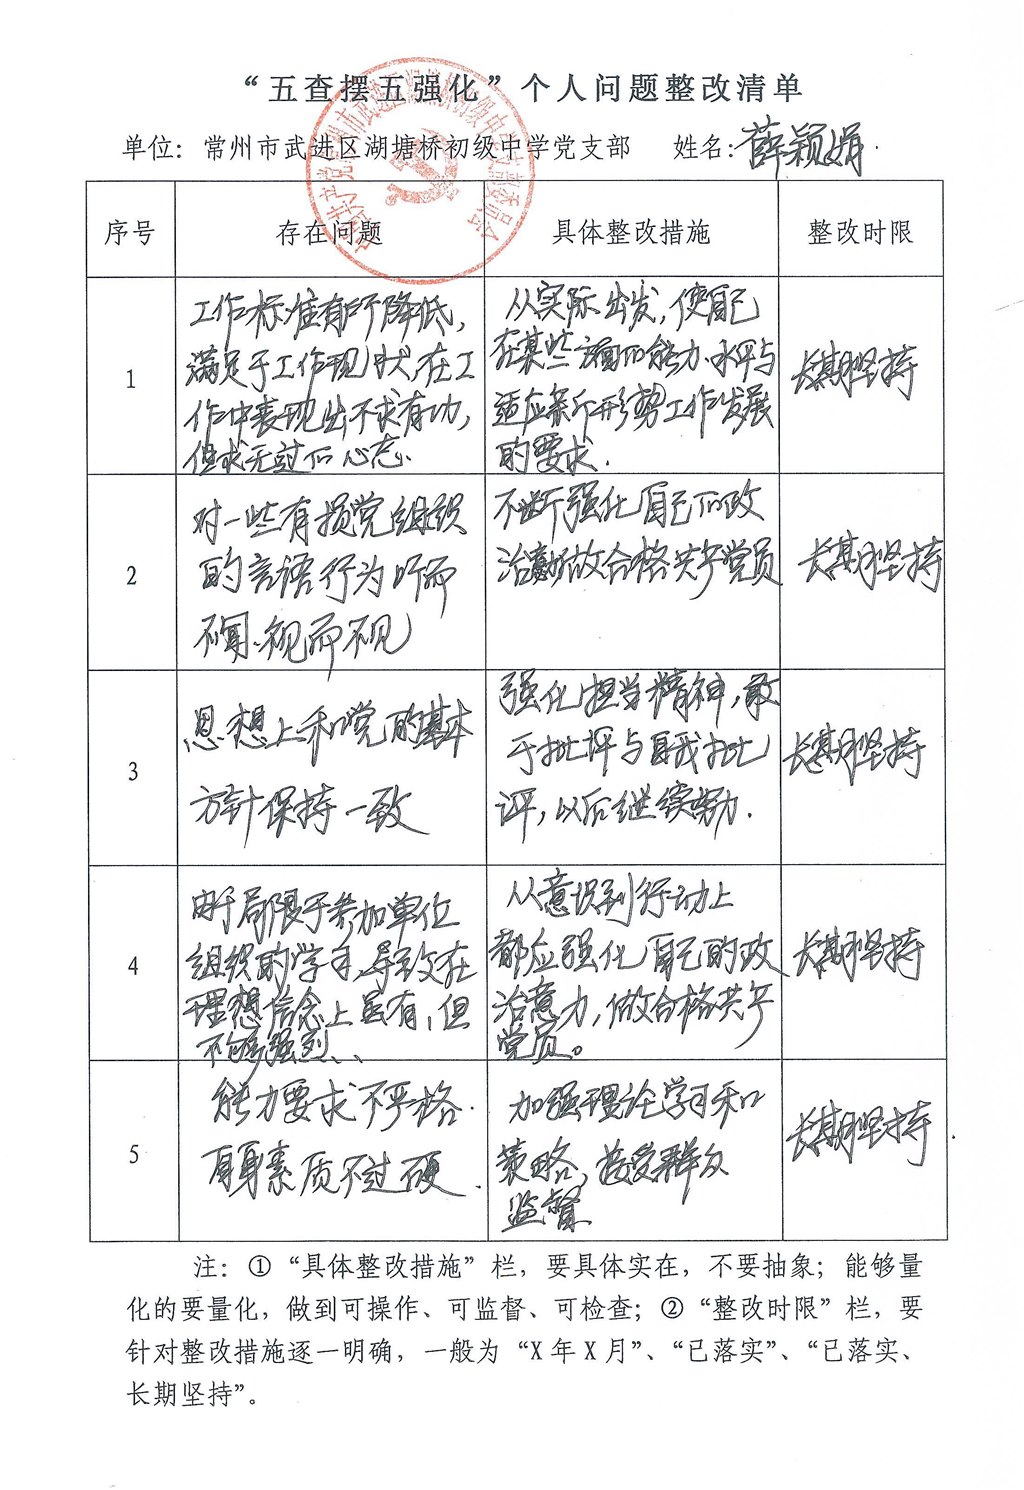 “五查摆五强化”个人问题整改清单
单位：常州市武进区湖塘桥初级中学党支部 姓名：薛颖娟
序号 存在问题 具体整改措施 整改时限
1
工作标准有所降低，
满足于工作现状，在工
作中表现出不求有功，
但求无过的心态.
从实际出发，使自己
在某些方面的能力、水平与
适应新形势工作发展
的要求.
长期坚持
2
对一些有损党组织
的言语行为听而
不闻、视而不见
不断强化自己的政
治意识做合格共产党员
长期坚持
3
思想上和党的基本
方针保持一致
强化担当精神，敢
于批评与自我批
评，以后继续努力.
长期坚持
4
由于局限于参加单位
组织的学习，导致在
理想信念上虽有，但
不够强烈、
从意识到行动上
都应强化自己的政
治意力，做合格共产
党员。
长期坚持
5
能力要求不严格.
自身素质不过硬.
加强理论学习和
策略，接受群众
监督
长期坚持
注：①“具体整改措施”栏，要具体实在，不要抽象；能够量
化的要量化，做到可操作、可监督、可检查；②“整改时限”栏，要
针对整改措施逐一明确，一般为“X年X月”、“已落实”、“已落实、
长期坚持”。